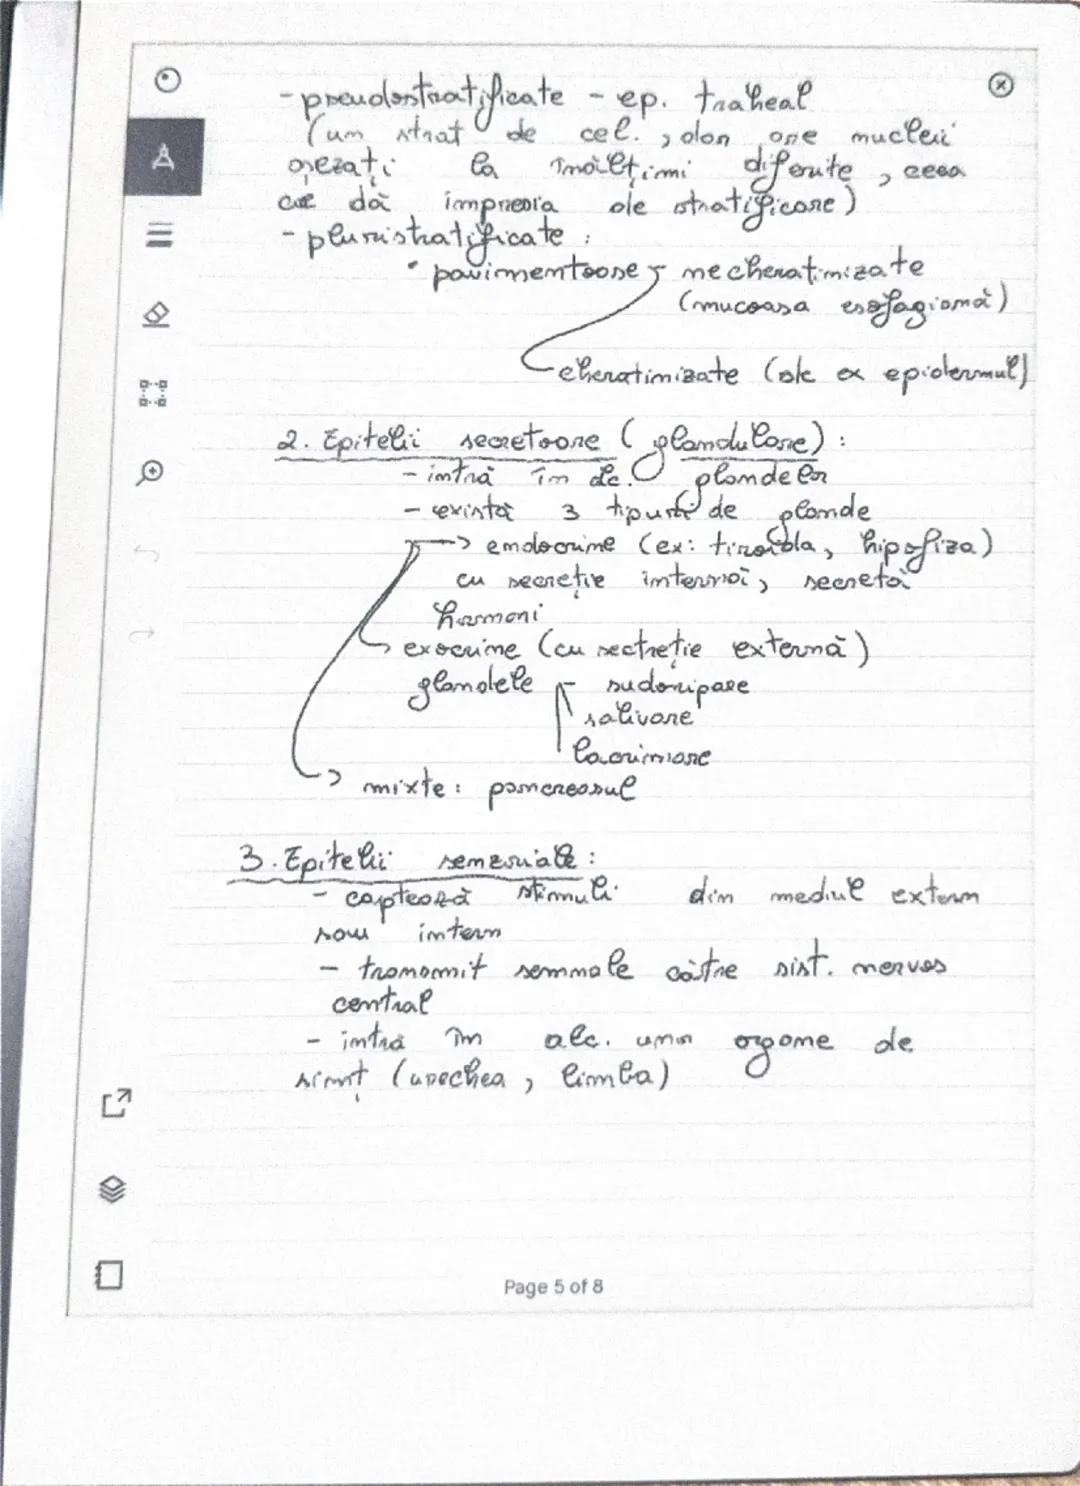 - pseudostratificate - ep. traheal
(un strat de cel., dar are nuclei
așezați la înălțimi diferite, ceea
ce dă impresia de stratificare)
- pluristratificate :
• pavimentoase necheratinizate
(mucoasa esofagiană)
cheratinizate (de ex epidermul)
2. Epitelii secretoare (glandulare) :
- intră în alc. glandelor
- există 3 tipuri de glande
→ endocrine (ex: tiroida, hipofiza)
cu secreție internă, secretă
hormoni
→ exocrine (cu sectreție externă)
glandele - sudoripare
salivare
lacrimare
→ mixte : pancreasul
3. Epitelii senzoriale :
- captează stimuli din mediul extern
sau intern
- transmit semnale către sist. nervos
central
- intră în alc. unor organe de
simț (urechea, limba)
Page 5 of 8